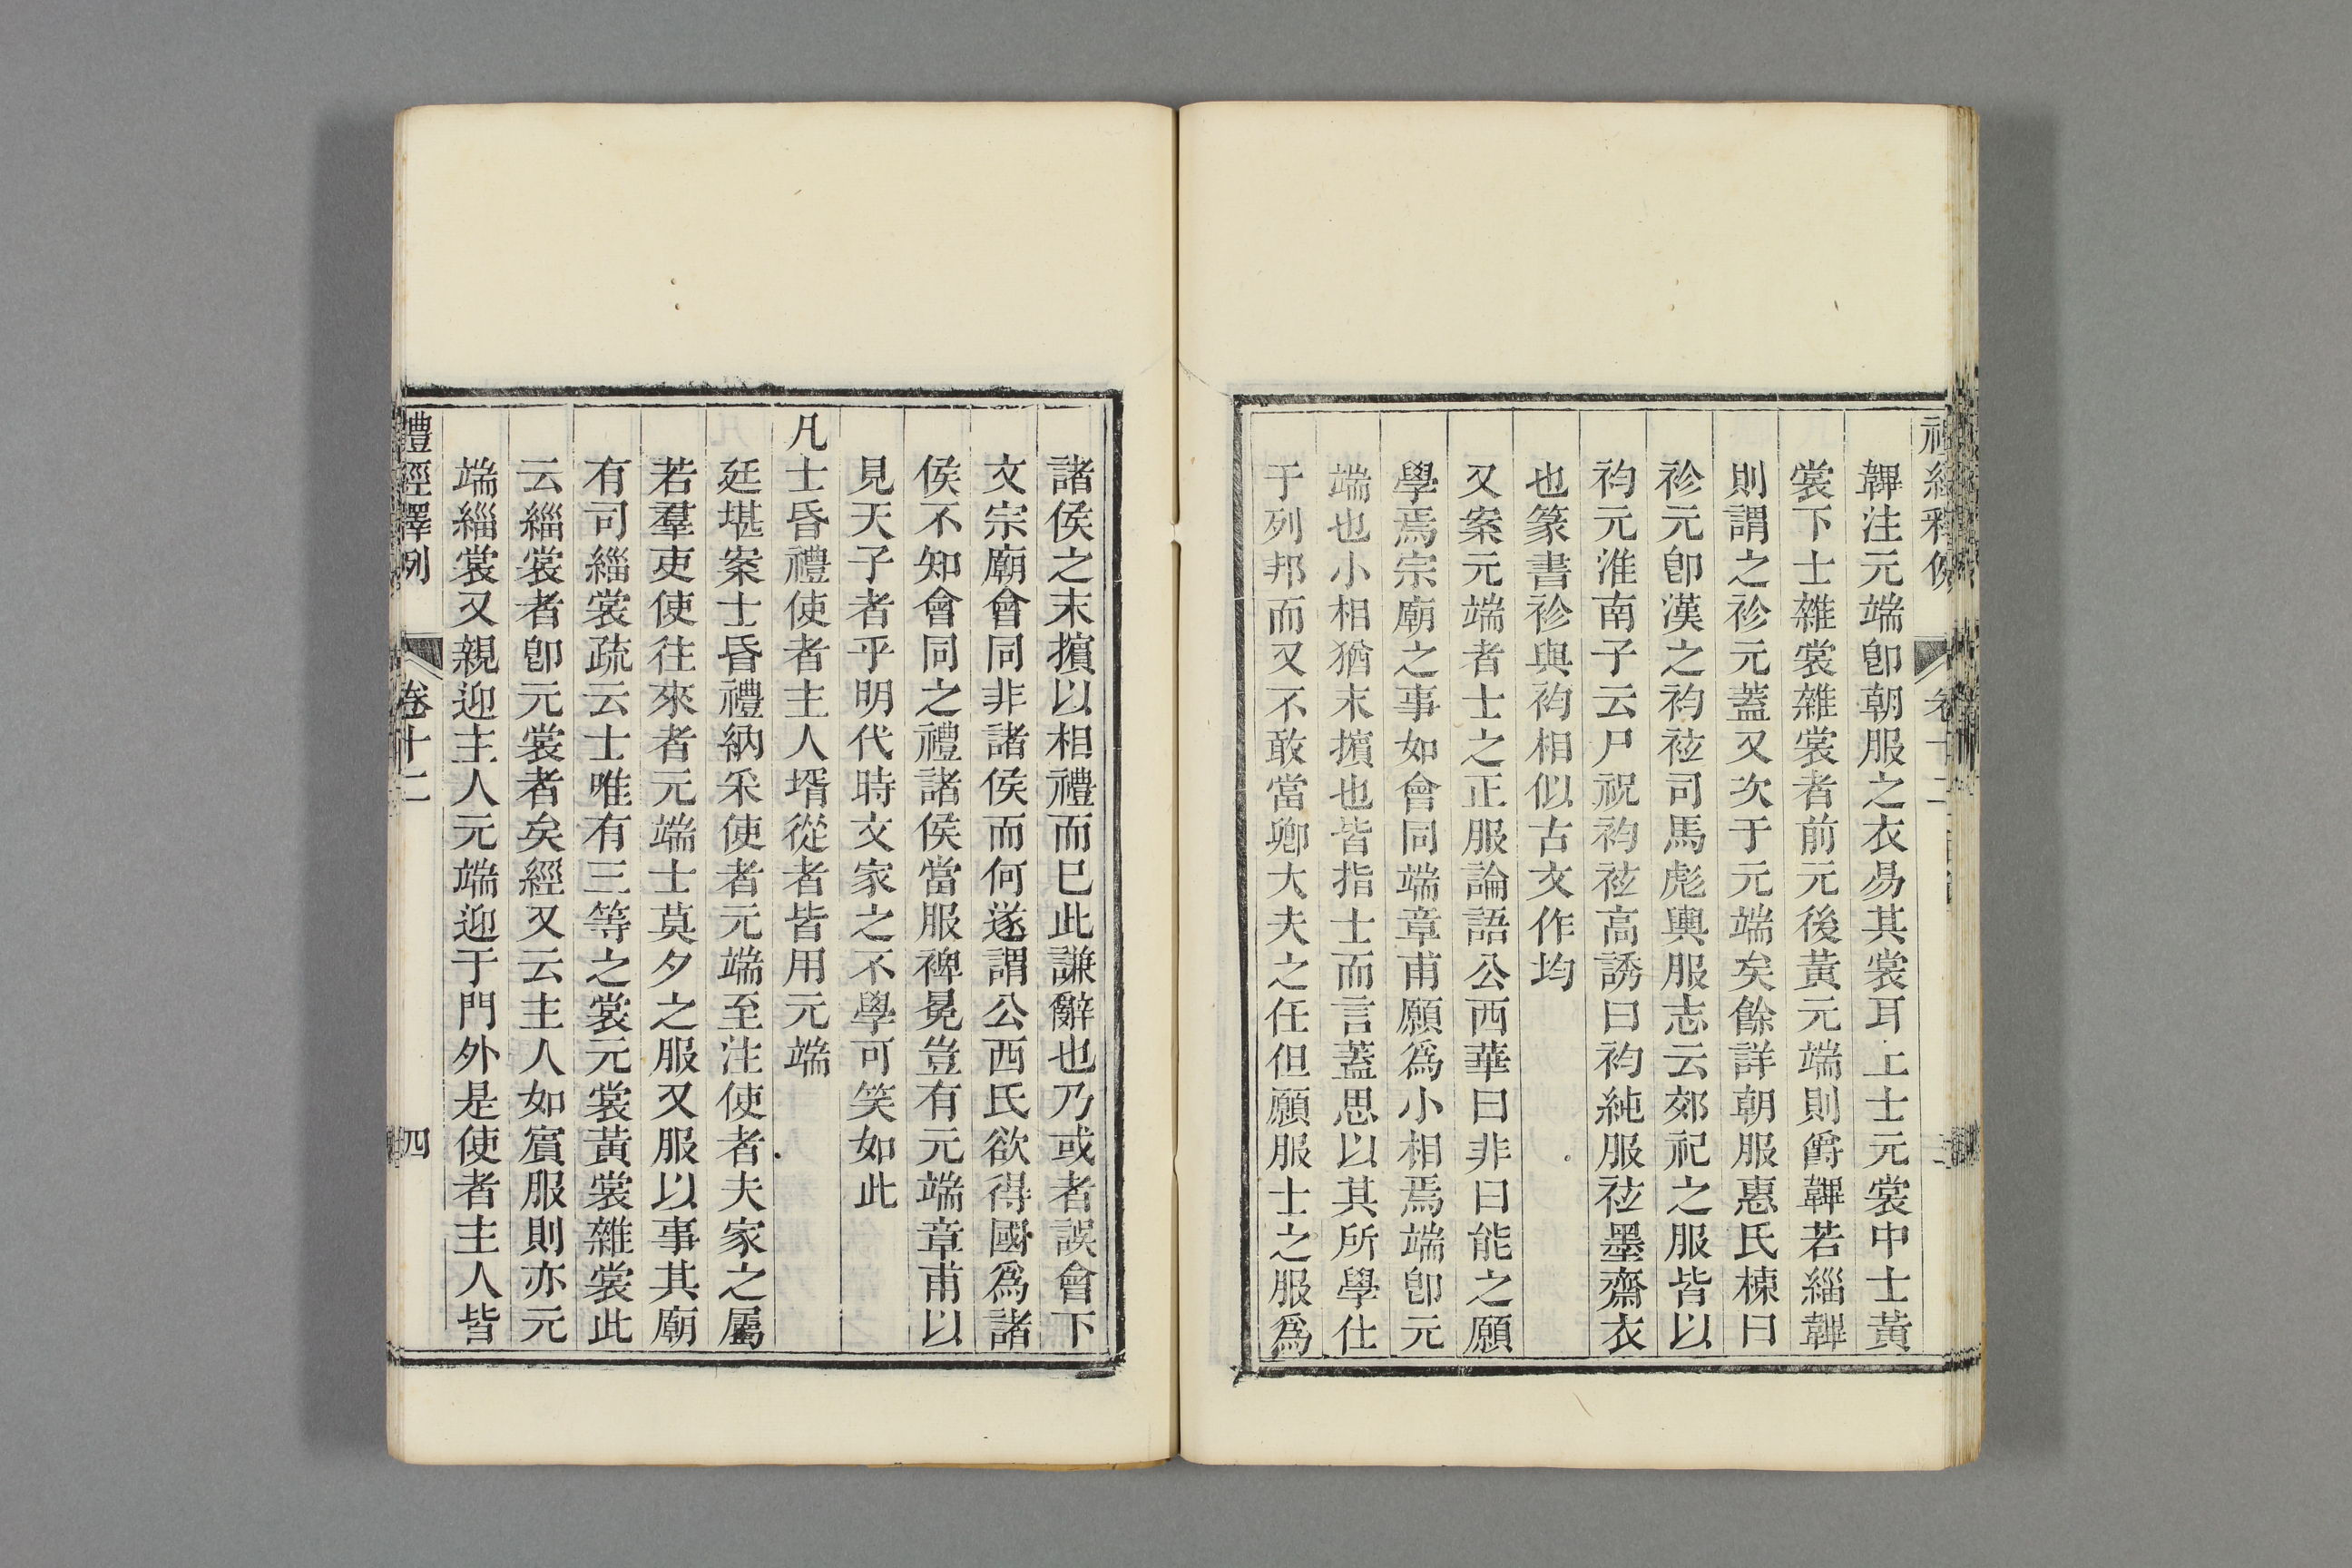 韠注元端卽朝服之衣易其裳耳上士元裳中士黃
裳下士雜裳雜裳者前元後黃元端則爵韠若緇韠
則謂之袗元蓋又次于元端矣餘詳朝服惠氏棟曰
袗元卽漢之袀袨司馬彪輿服志云郊祀之服皆以
袀元淮南子云尸祝袀袨高誘曰袀純服袨墨齋衣
也篆書袗與袀相似古文作均
又案元端者士之正服論語公西華曰非曰能之願
學焉宗廟之事如會同端章甫願爲小相焉端卽元
端也小相猶末擯也皆指士而言蓋思以其所學仕
于列邦而又不敢當卿大夫之任但願服士之服爲
諸侯之末擯以相禮而巳此謙辭也乃或者誤會下
文宗廟會同非諸侯而何遂謂公西氏欲得國爲諸
侯不知會同之禮諸侯當服裨冕豈有元端章甫以
見天子者乎明代時文家之不學可笑如此
凡士昏禮使者主人壻從者皆用元端
廷堪案士昏禮納采使者元端至注使者夫家之屬
若羣吏使往來者元端士莫夕之服又服以事其廟
有司緇裳疏云士唯有三等之裳元裳黃裳雜裳此
云緇裳者卽元裳者矣經又云主人如賓服則亦元
端緇裳又親迎主人元端迎于門外是使者主人皆
禮經釋例 卷十二 四